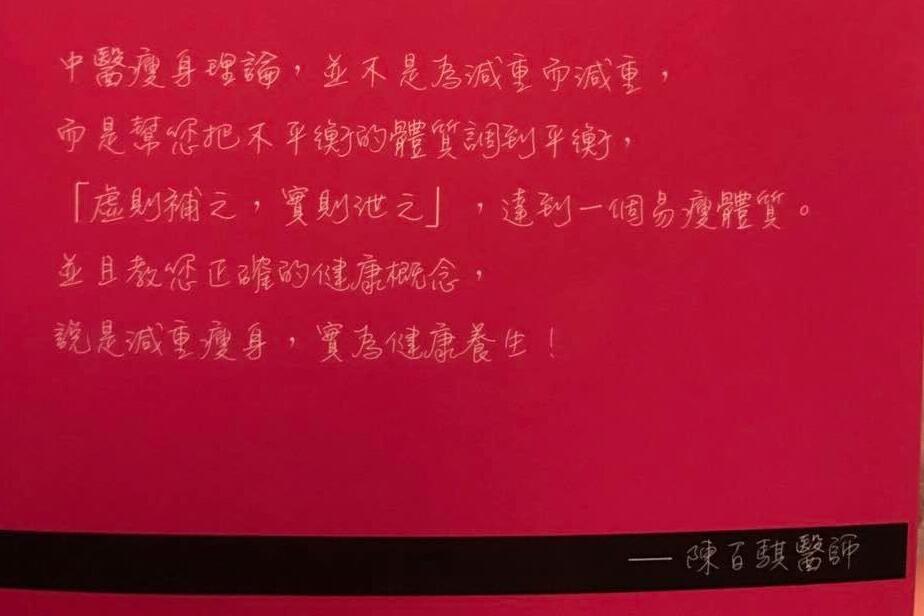 中醫瘦身理論，並不是為減重而減重，
而是幫您把不平衡的體質調到平衡，
「虛則補之，實則泄之」，達到一個易瘦體質。
並且教您正確的健康概念，
說是減重瘦身，實為健康養生！
——陳百騏醫師